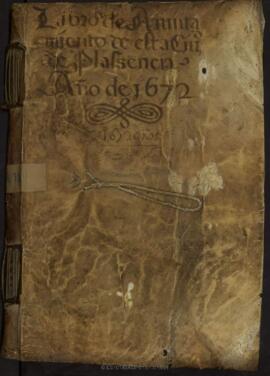 Libro de Ayunta
miento de esta Ciu.ᵈ
de Plassencia
Año de 1672